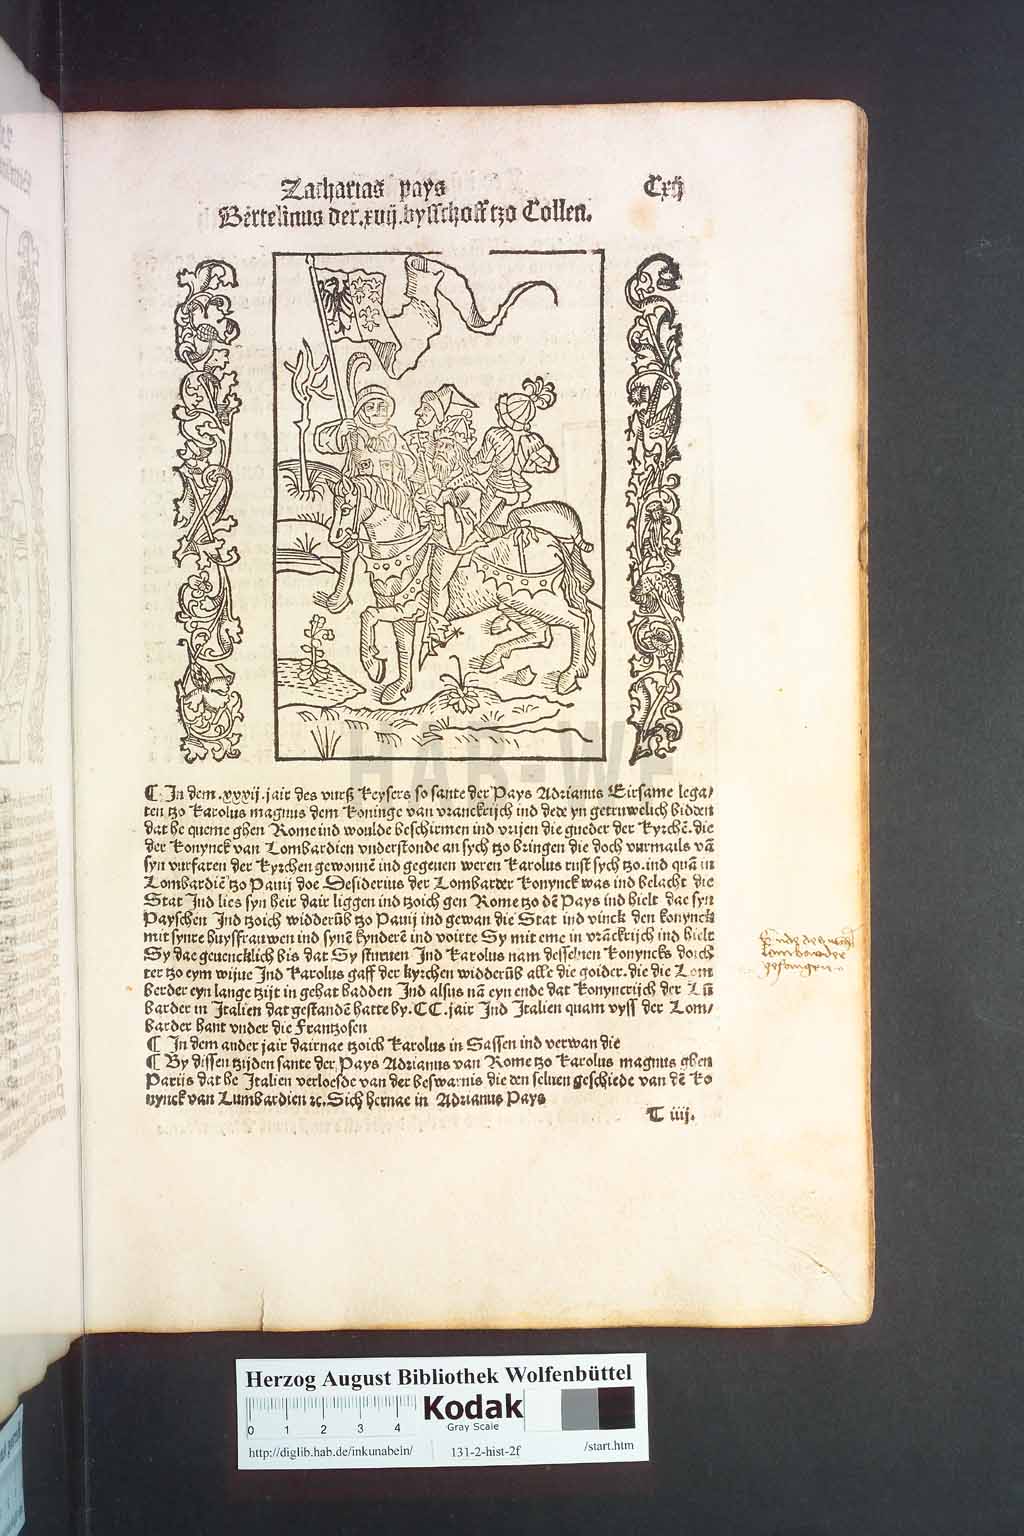 Zacharias pays Cxij
Bertelinus der.xvij.bysschoff tzo Collen.
¶ In dem .xxxij. jair des vurß keysers so sante der Pays Adrianus Eirsame lega/
ten tzo Karolus magnus dem Koninge van vranckrijch ind dede yn getruwelich bidden
dat he queme ghen Rome ind woulde beschirmen ind vrijen die gueder der kyrchē. die
der Konynck van Lombardien vnderstonde an sych tzo bringen die doch vurmails vā
syn vurfaren der kyrchen gewonnē ind gegeuen weren Karolus rust sych tzo. ind quā in
Lombardiē tzo Pauij doe Desiderius der Lombarder konynck was ind belacht die
Stat Ind lies syn heir dair liggen ind tzoich gen Rome tzo dē Pays ind hielt dae syn
Payschen Ind tzoich widderūb tzo Pauij ind gewan die Stat ind vinck den konynck
mit synre huysfrauwen ind synē kynderē ind voirte Sy mit eme in vrāckrijch ind hielt
Sy dae geuencklich bis dat Sy sturuen Ind Karolus nam desseluen konyncks doich
ter tzo eym wijue Ind Karolus gaff der kyrchen widderūb alle die goider. die die Lom
berder eyn lange tzijt in gehat hadden Ind alsus nā eyn ende dat konyncrijch der Lū
barder in Italien dat gestandē hatte by. CC. jair Ind Italien quam vyss der Lom/
barder hant vnder die Frantzosen
¶ In dem ander jair dairnae tzoich Karolus in Sassen ind verwan die
¶ By dissen tzijden sante der Pays Adrianus van Rome tzo Karolus magnus ghen
Parijs dat he Italien verloesde van der beswarnis die den seluen geschiede van dē ko
nynck van Lumbardien ⁊c. Sich hernae in Adrianus Pays
T iiij.
gefangen
HAB-WF
Herzog August Bibliothek Wolfenbüttel
0 1 2 3 4
Kodak
Gray Scale
http://diglib.hab.de/inkunabeln/ 131-2-hist-2f /start.htm